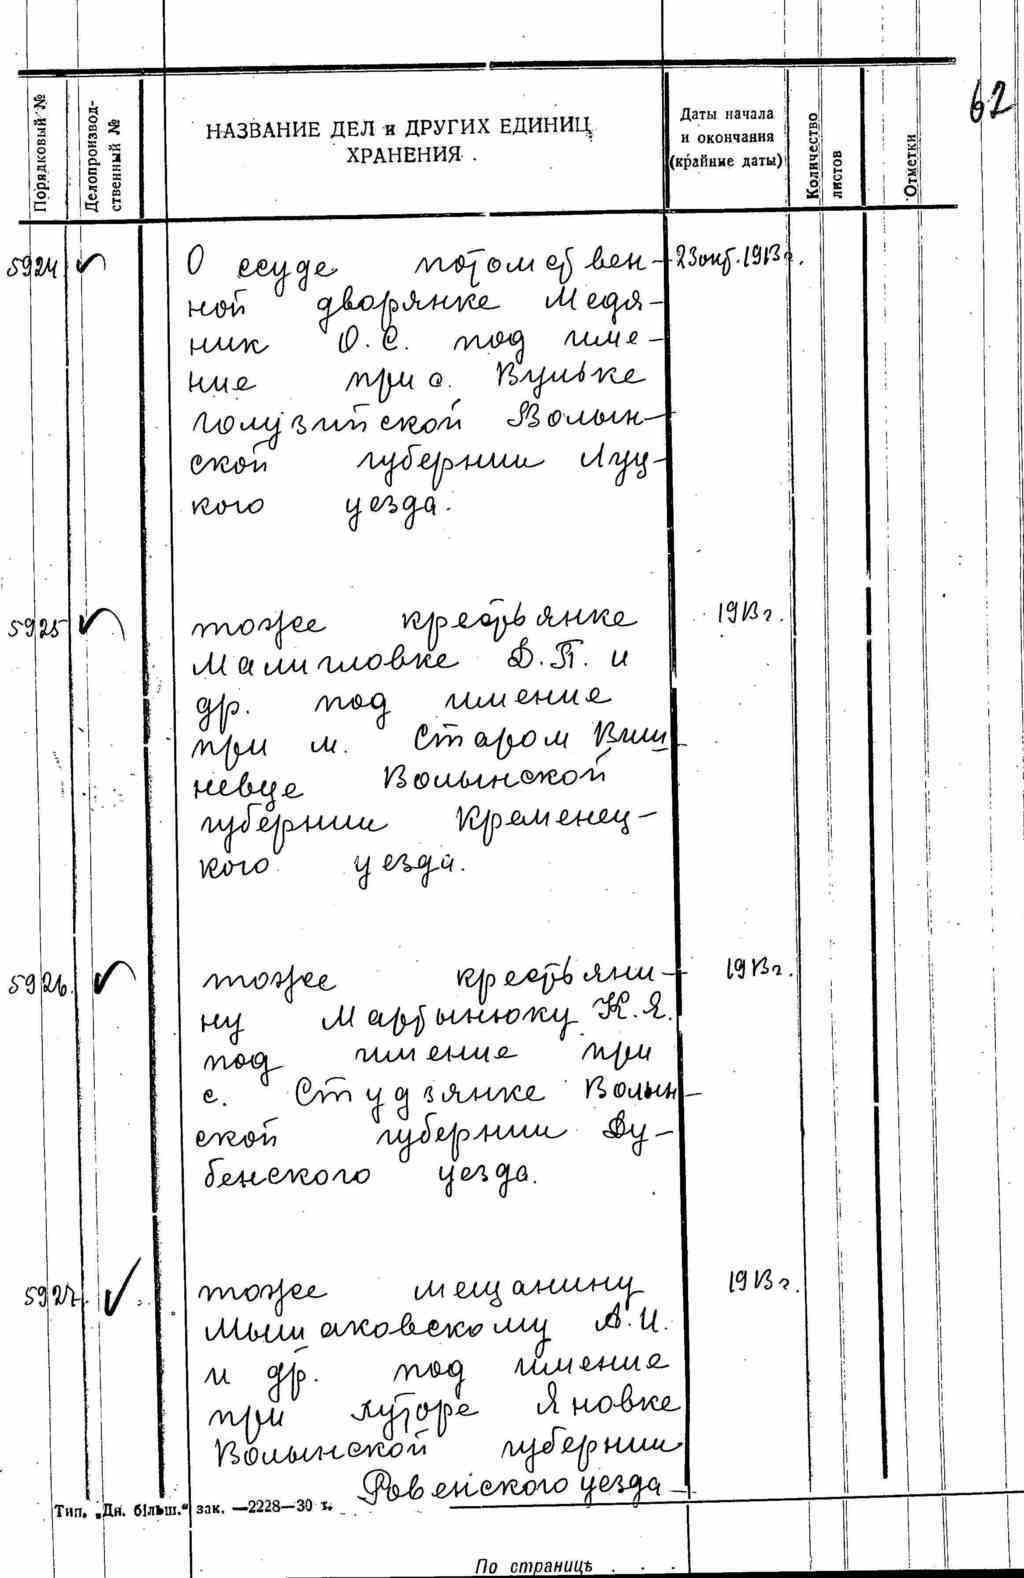 62
Порядковый №
Делопроизвод-
ственный №
НАЗВАНИЕ ДЕЛ и ДРУГИХ ЕДИНИЦ
ХРАНЕНИЯ.
Даты начала
и окончания
(крайние даты)
Количество
листов
Отметки
5924 О ссуде потомствен- 23 окт. 1913 г.
ной дворянке Медя-
ник О.С. под име-
ние при с. Вульке
голузийской Волын-
ской губернии Луц-
кого уезда.
5925 тоже крестьянке 1913 г.
Малигловке Д.П. и
др. под имение
при м. Старом Виш
невце Волынской
губернии Кременец-
кого уезда.
5926. тоже крестьяни- 1913 г.
ну Мартынюку К.Я.
под имение при
с. Студзянке Волын-
ской губернии Ду-
бенского уезда.
5927. тоже мещанину 1913 г.
Мышаковскому А.И.
и др. под имение
при хуторе Яновке
Волынской губернии
Ровенского уезда
Тип. „Дн. більш." зак. —2228—30 г.
По страницѣ